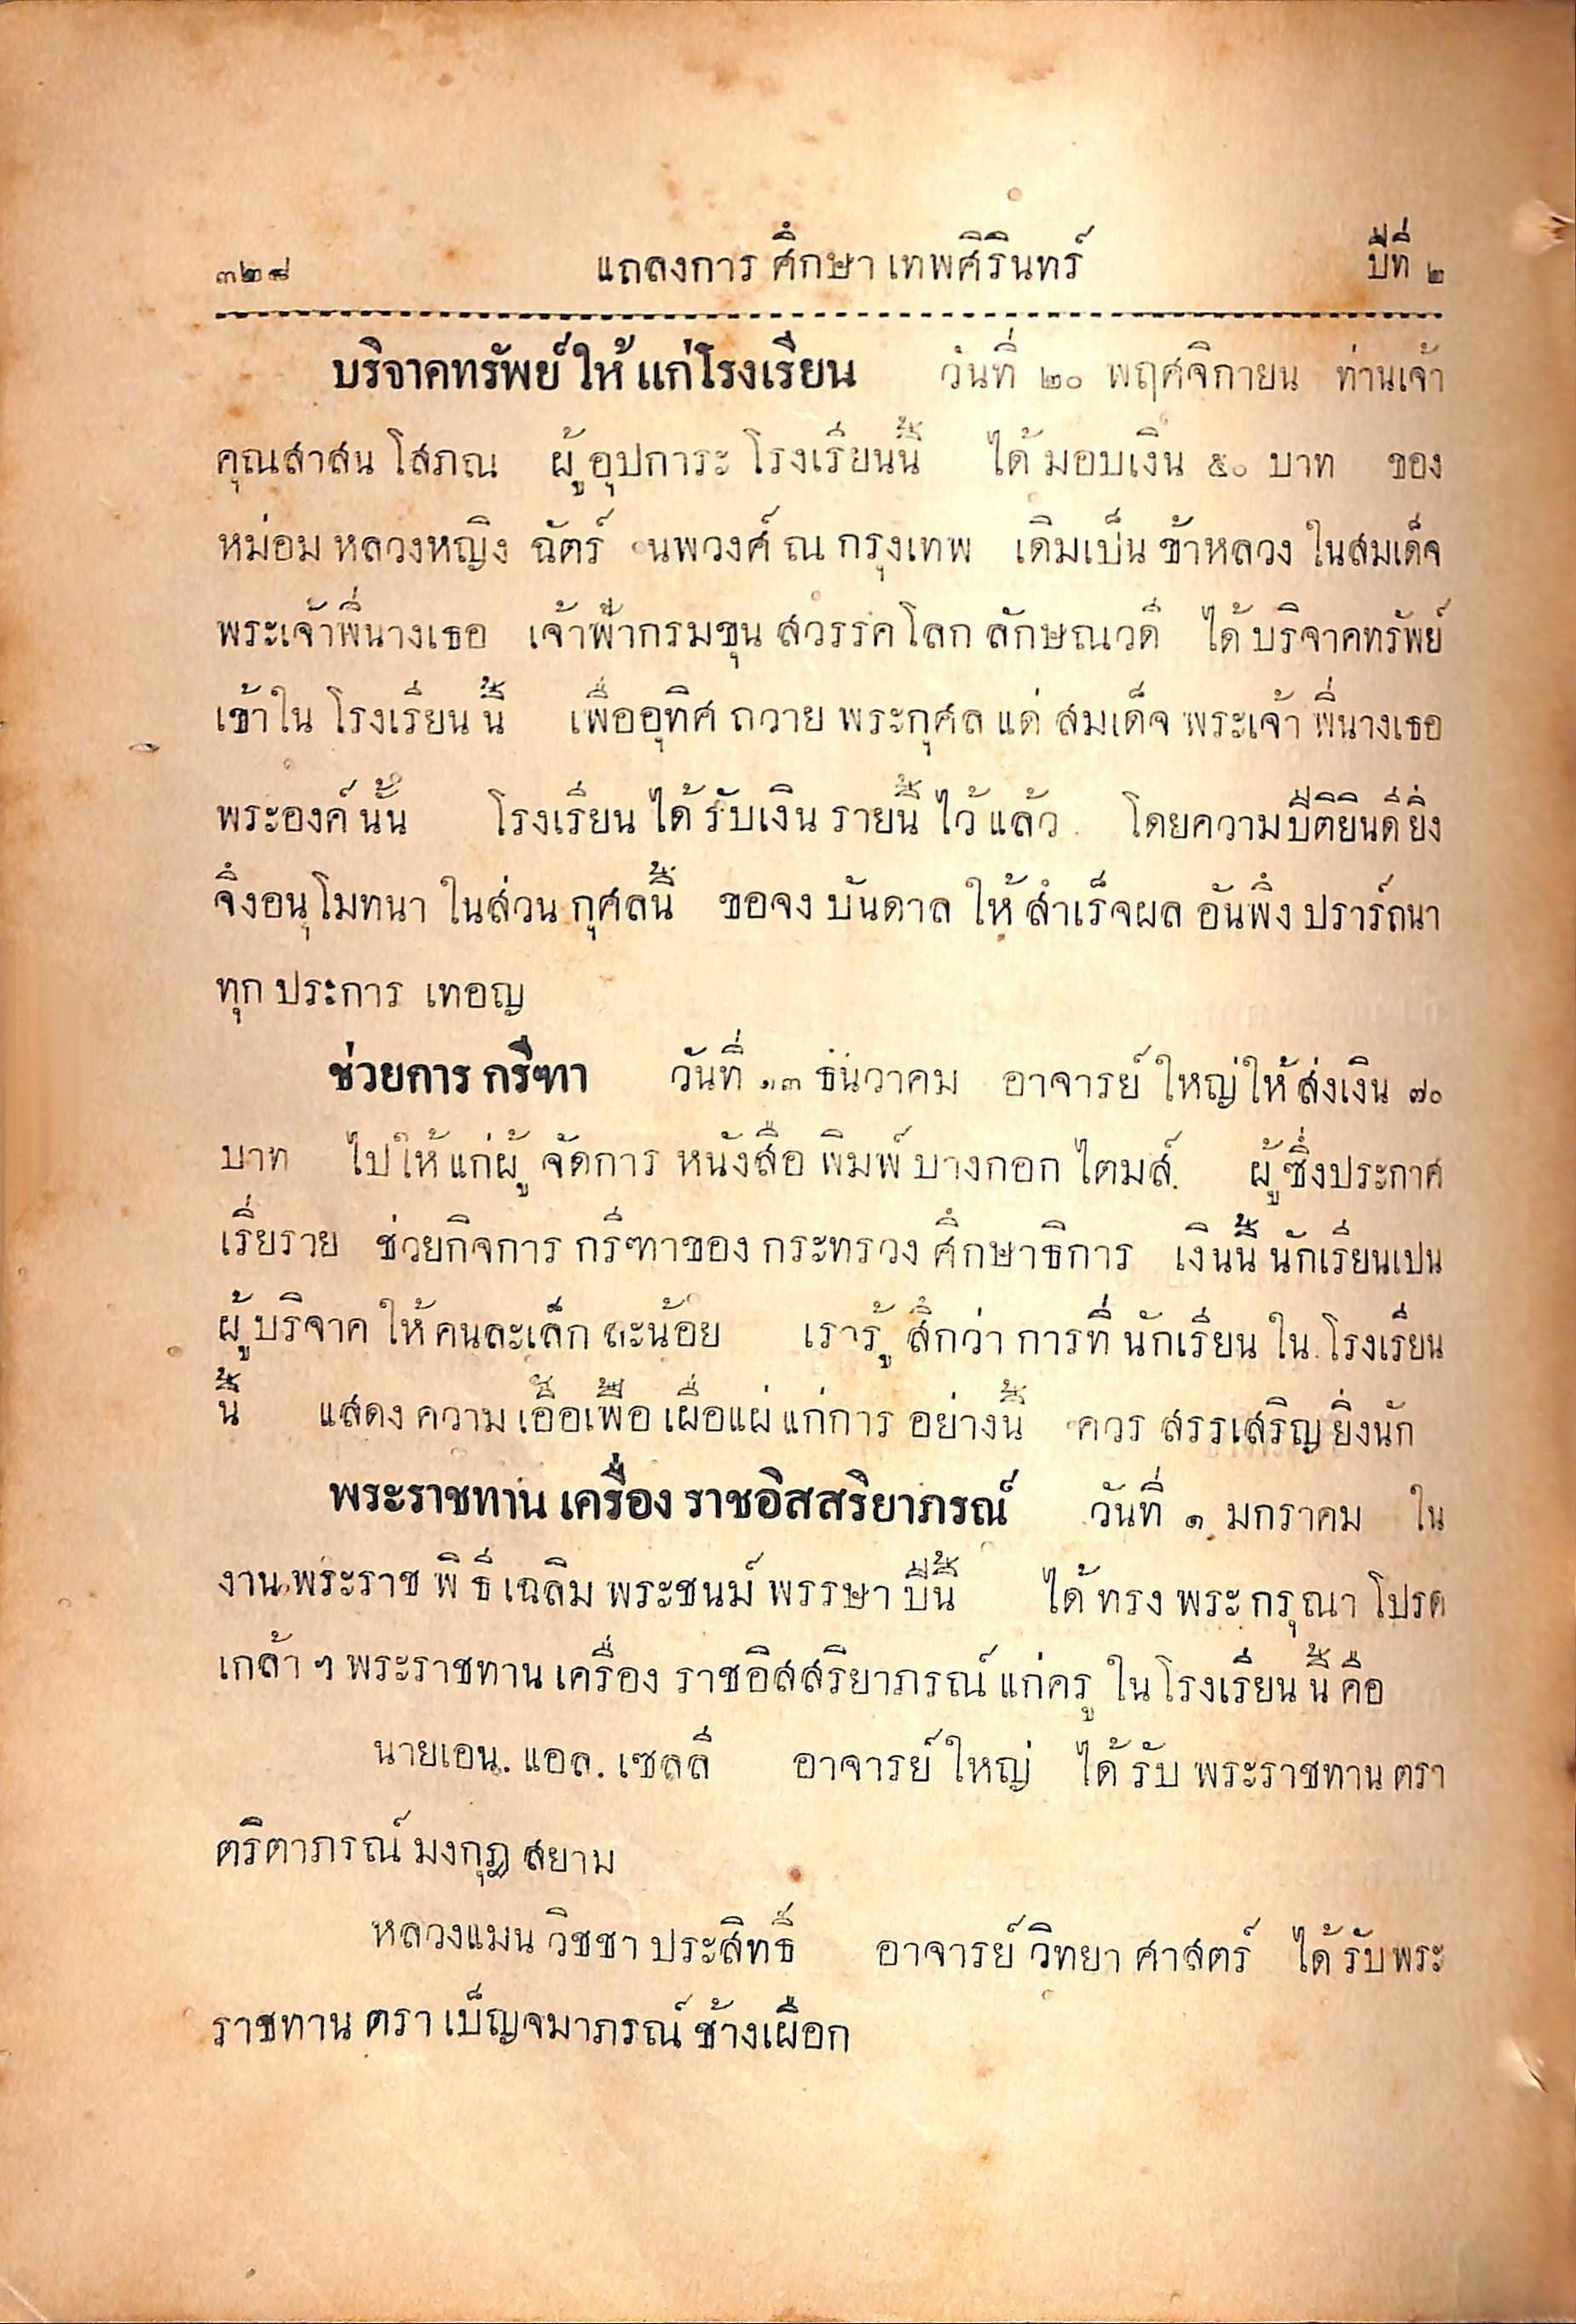 ๓๒๘ แถลงการ ศึกษา เทพศิรินทร์ ปีที่ ๒
บริจาคทรัพย์ ให้ แก่โรงเรียน วันที่ ๒๐ พฤศจิกายน ท่านเจ้า
คุณสาสน โสภณ ผู้อุปการะ โรงเรียนนี้ ได้ มอบเงิน ๕๐ บาท ของ
หม่อม หลวงหญิง ฉัตร์ นพวงศ์ ณ กรุงเทพ เดิมเป็น ข้าหลวง ในสมเด็จ
พระเจ้าพี่นางเธอ เจ้าฟ้ากรมขุน สวรรค โลก ลักษณวดี ได้ บริจาคทรัพย์
เข้าใน โรงเรียน นี้ เพื่ออุทิศ ถวาย พระกุศล แด่ สมเด็จ พระเจ้า พี่นางเธอ
พระองค์ นั้น โรงเรียน ได้ รับเงิน รายนี้ ไว้ แล้ว โดยความปีติยินดียิ่ง
จึงอนุโมทนา ในส่วน กุศลนี้ ขอจง บันดาล ให้ สำเร็จผล อันพึง ปรารถนา
ทุก ประการ เทอญ
ช่วยการ กรีฑา วันที่ ๑๓ ธันวาคม อาจารย์ ใหญ่ให้ ส่งเงิน ๗๐
บาท ไปให้ แก่ผู้ จัดการ หนังสือ พิมพ์ บางกอก ไตมส์. ผู้ซึ่งประกาศ
เรี่ยราย ช่วยกิจการ กรีฑาของ กระทรวง ศึกษาธิการ เงินนี้ นักเรียนเปน
ผู้ บริจาค ให้ คนละเล็ก ละน้อย เรารู้ สึกว่า การที่ นักเรียน ใน โรงเรียน
นี้ แสดง ความ เอื้อเฟื้อ เผื่อแผ่ แก่การ อย่างนี้ ควร สรรเสริญ ยิ่งนัก
พระราชทาน เครื่อง ราชอิสสริยาภรณ์ วันที่ ๑ มกราคม ใน
งาน พระราช พิธี เฉลิม พระชนม์ พรรษา ปีนี้ ได้ ทรง พระ กรุณา โปรด
เกล้า ฯ พระราชทาน เครื่อง ราชอิสสริยาภรณ์ แก่ครู ในโรงเรียน นี้ คือ
นายเอน. แอล. เซลลี อาจารย์ ใหญ่ ได้ รับ พระราชทาน ตรา
ตริตาภรณ์ มงกุฎ สยาม
หลวงแมน วิชชา ประสิทธิ์ อาจารย์ วิทยา ศาสตร์ ได้ รับพระ
ราชทาน ตรา เบ็ญจมาภรณ์ ช้างเผือก